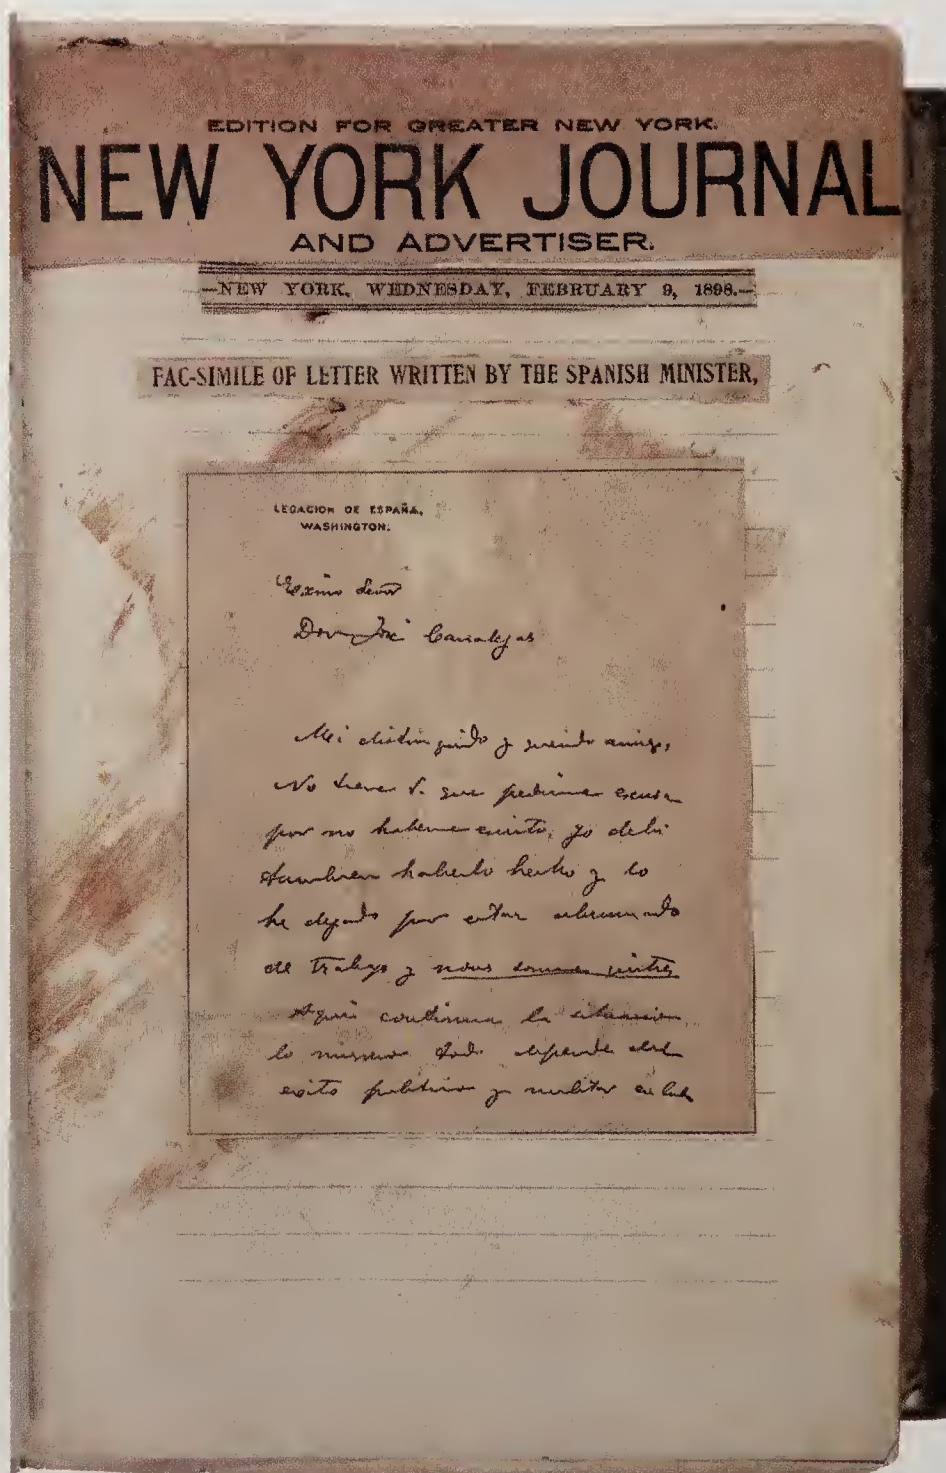 EDITION FOR GREATER NEW YORK.
NEW YORK JOURNAL
AND ADVERTISER.
—NEW YORK, WEDNESDAY, FEBRUARY 9, 1898.—
FAC-SIMILE OF LETTER WRITTEN BY THE SPANISH MINISTER,
LEGACION DE ESPAÑA,
WASHINGTON.
Exmo Señor
Don José Canalejas
Mi distinguido y querido amigo,
No tiene V. que pedirme excusa
por no haberme escrito, yo debi
tambien haberlo hecho y lo
he dejado por estar abrumado
de trabajo y nous sommes quittes
Aqui continua la situacion
lo mismo todo depende del
exito politico y militar en Cuba